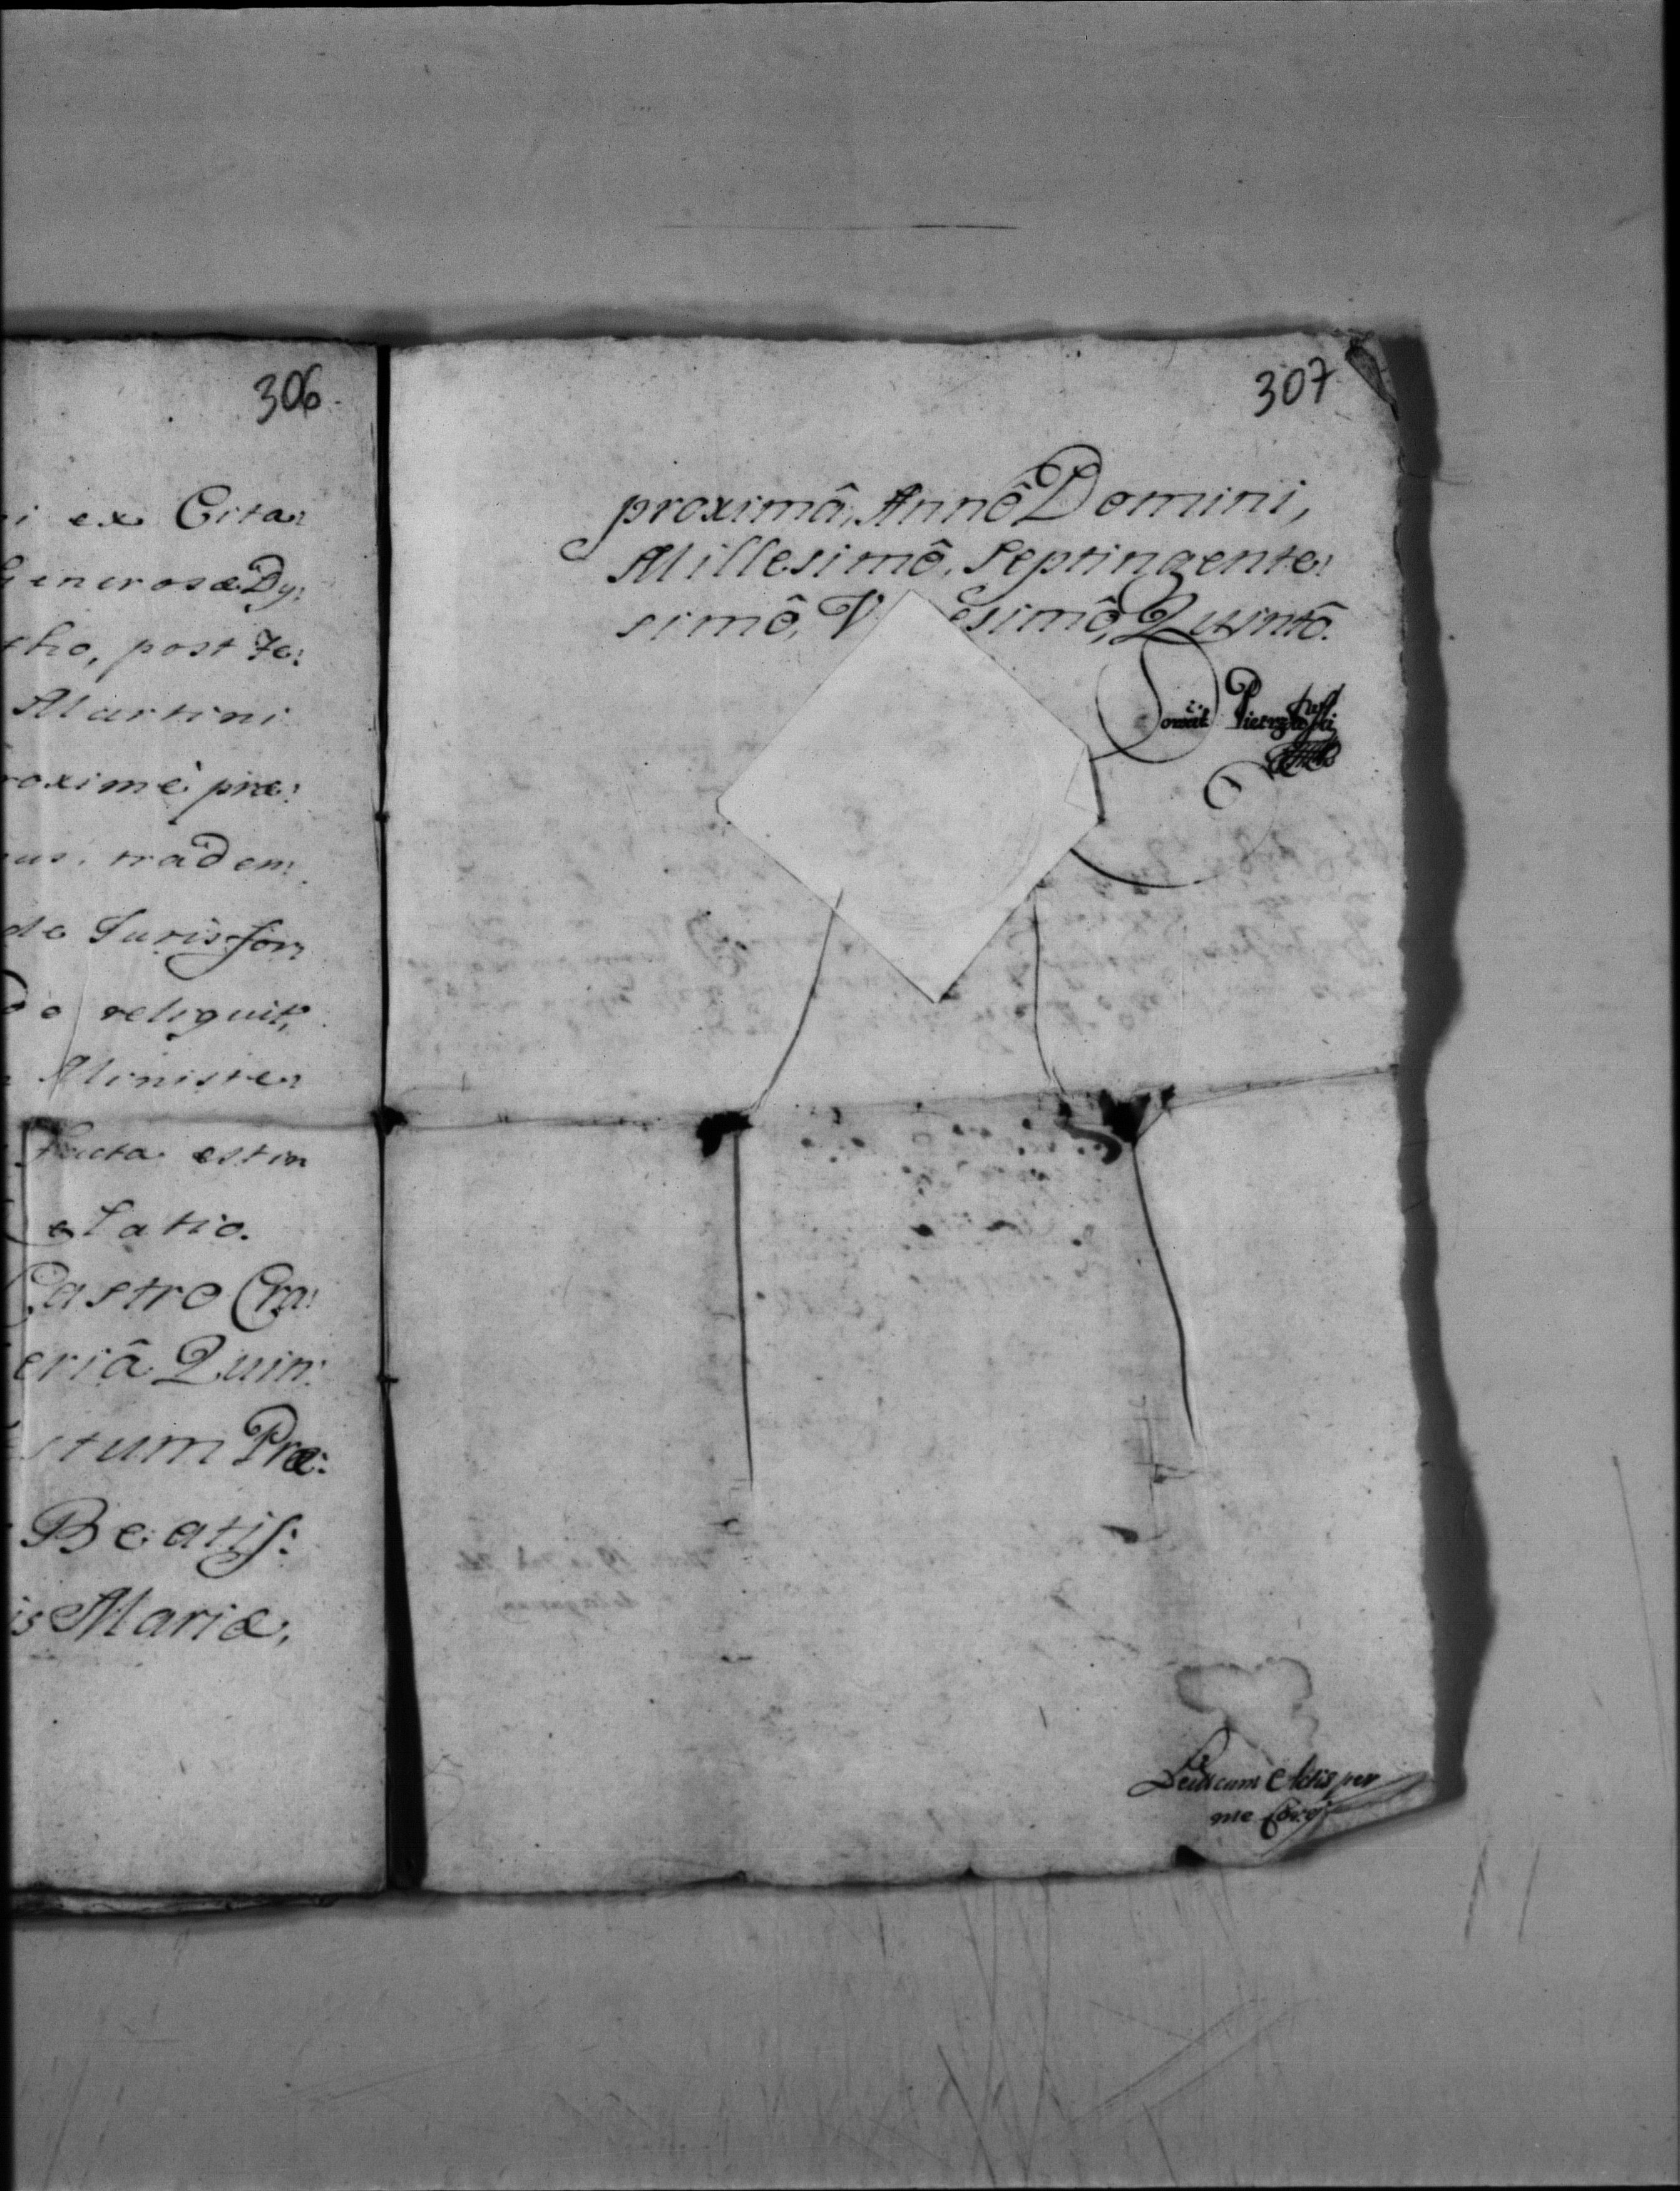 306
i ex Cita:
Generosæ Dy:
tho, post Fe:
Martini
roximè præ:
us, tradem:
de Juris for:
do reliquit,
Minister
facta est in
elatio.
Castro Cra:
eriâ Quin:
stum Præ:
Beatiſ:
is Mariæ,
307
proximâ, Annô Domini,
Millesimô, Septingente:
simô, V esimô, Quintô.
Lectum cum Actis per
me